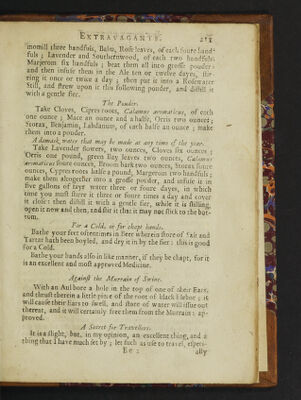 EXTRAVAGANTS. 211
inomill three handfuls, Balm, Rose leaves, of each foure hand-
fuls ; Lavender and Southernwood, of each two handfuls
Marjerom six handfuls ; beat them all into grosse pouder;
and then infuse them in the Ale ten or twelve dayes, stir-
ring it once or twice a day ; then put it into a Rosewater
Still, and strew upon it this following pouder, and distill it
with a gentle fire.
The Pouder.
Take Cloves, Cipres roots, Calamus aromaticus, of each
one ounce ; Mace an ounce and a halfe, Orris two ounces;
Storax, Benjamin, Labdanum, of each halfe an ounce ; make
them into a pouder.
A damask water that may be made at any time of the year.
Take Lavender flowers, two ounces, Cloves six ounces ;
Orris one pound, green Bay leaves two ounces, Calamus
aromaticus foure ounces, Broom bark two ounces, Storex foure
ounces, Cypres roots halfe a pound, Margerom two handfuls;
make them altogether into a grosse pouder, and infuse it in
five gallons of fayr water three or foure dayes, in which
time you must stirre it three or foure times a day and cover
it close : then distill it with a gentle fire, while it is stilling,
open it now and then, and stir it that it may not stick to the bot-
tom.
For a Cold, or for chapt hands.
Bathe your feet oftentimes in Bere wherein store of Salt and
Tartar hath been boyled, and dry it in by the fire : this is good
for a Cold.
Bathe your hands also in like manner, if they be chapt, for it
is an excellent and most approved Medicine.
Against the Murrain of Swine.
With an Aul bore a hole in the top of one of their Eares,
and thrust therein a little piece of the root of black Elebor ; it
will cause their Ears to swell, and store of water will issue out
thereat, and it will certainly free them from the Murrain : ap-
proved.
A Secret for Travellers.
It is a slight, but, in my opinion, an excellent thing, and a
thing that I have much set by ; let such as use to travel, especi-
Ee 2 ally